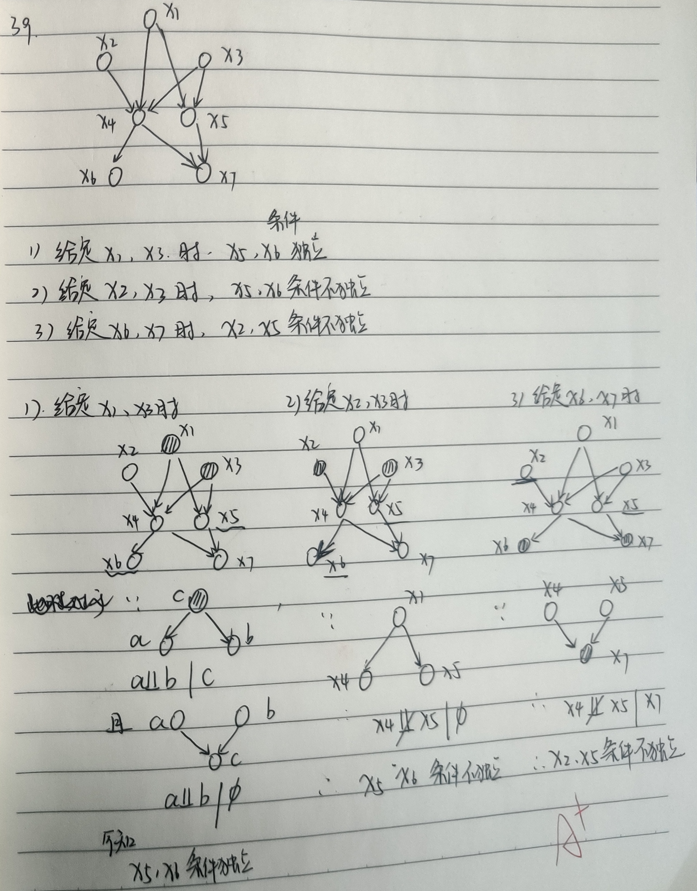 39.
x1
x2
x3
x4
x5
x6
x7
条件
1) 给定 x1, x3. 时. x5, x6 独立
2) 给定 x2, x3 时, x5, x6 条件不独立
3) 给定 x6, x7 时, x2, x5 条件不独立
1). 给定 x1、x3时
2) 给定 x2, x3时
3) 给定 x6, x7 时
x1
x2
x3
x4
x5
x6
x7
x1
x2
x3
x4
x5
x6
x7
x1
x2
x3
x4
x5
x6
x7
∵
c
a
b
a⫫b | c
且
a
b
c
a⫫b | ϕ
可知
x5, x6 条件独立
∵
x1
x4
x5
∴ x4 ⫫̸ x5 | ϕ
∴ x5 x6 条件不独立
∵
x4
x5
x7
∴ x4 ⫫̸ x5 | x7
∴ x2、x5 条件不独立
A+